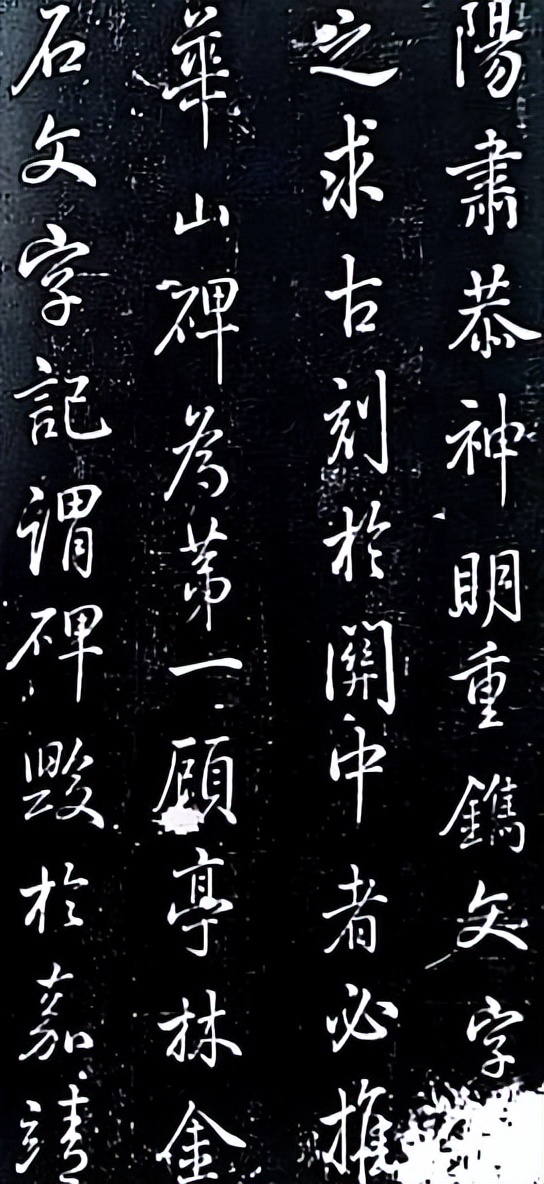 陽肅恭神明重鐫文字
之求古刻於關中者必推
華山碑為第一顧亭林金
石文字記謂碑毀於嘉靖